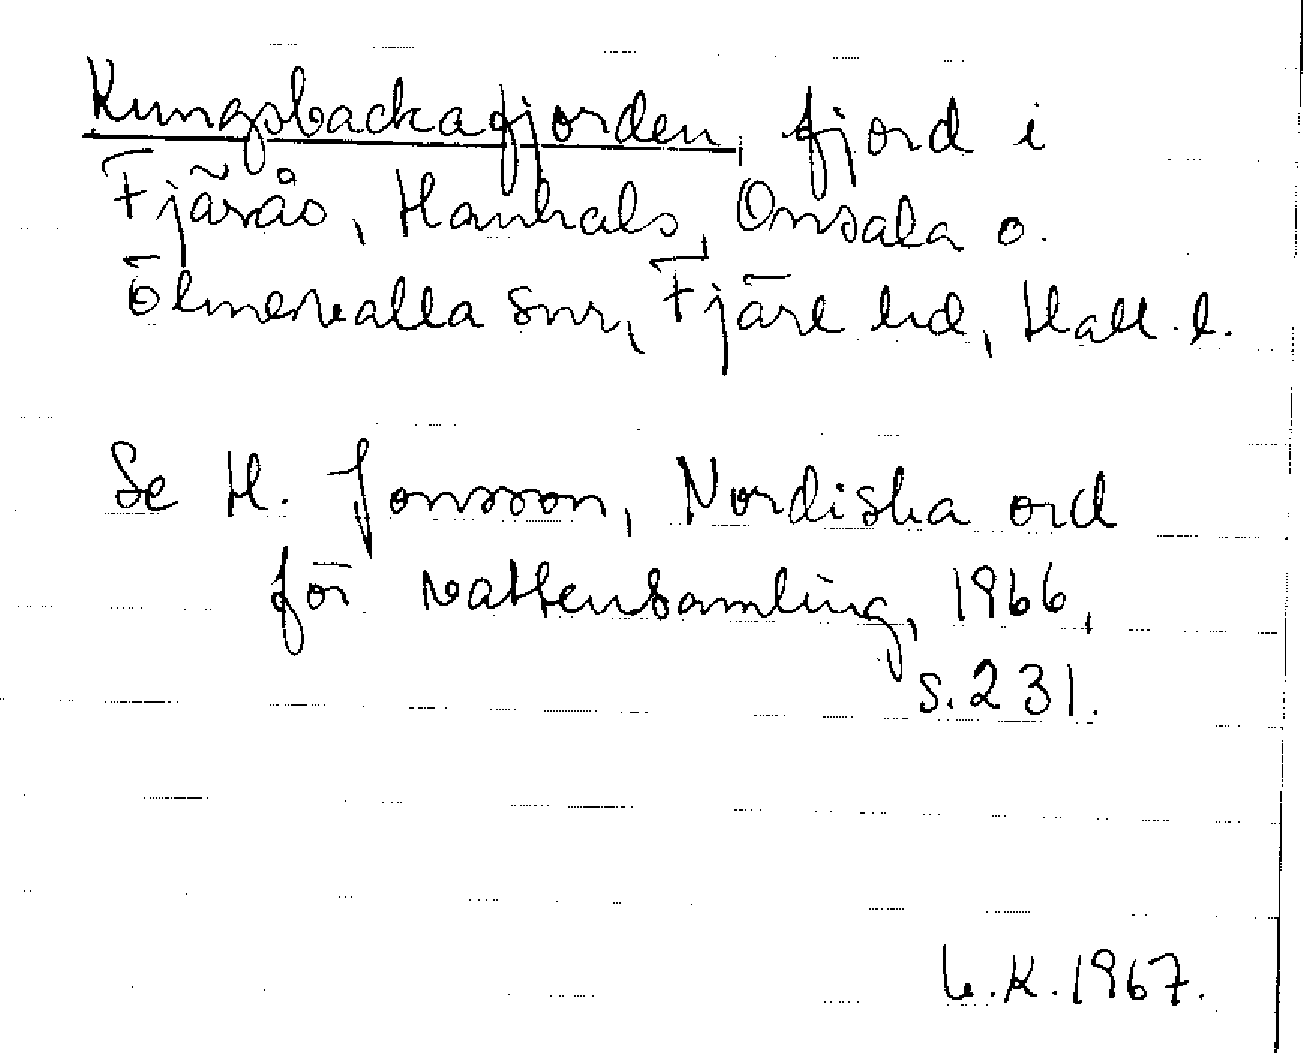 Kungsbackafjorden, fjord i
Fjärås, Hanhals, Onsala o.
Ölmevalla snr, Fjäre hd, Hall. l.
Se H. Jonsson, Nordiska ord
för vattensamling, 1966,
s. 231.
K. 1967.